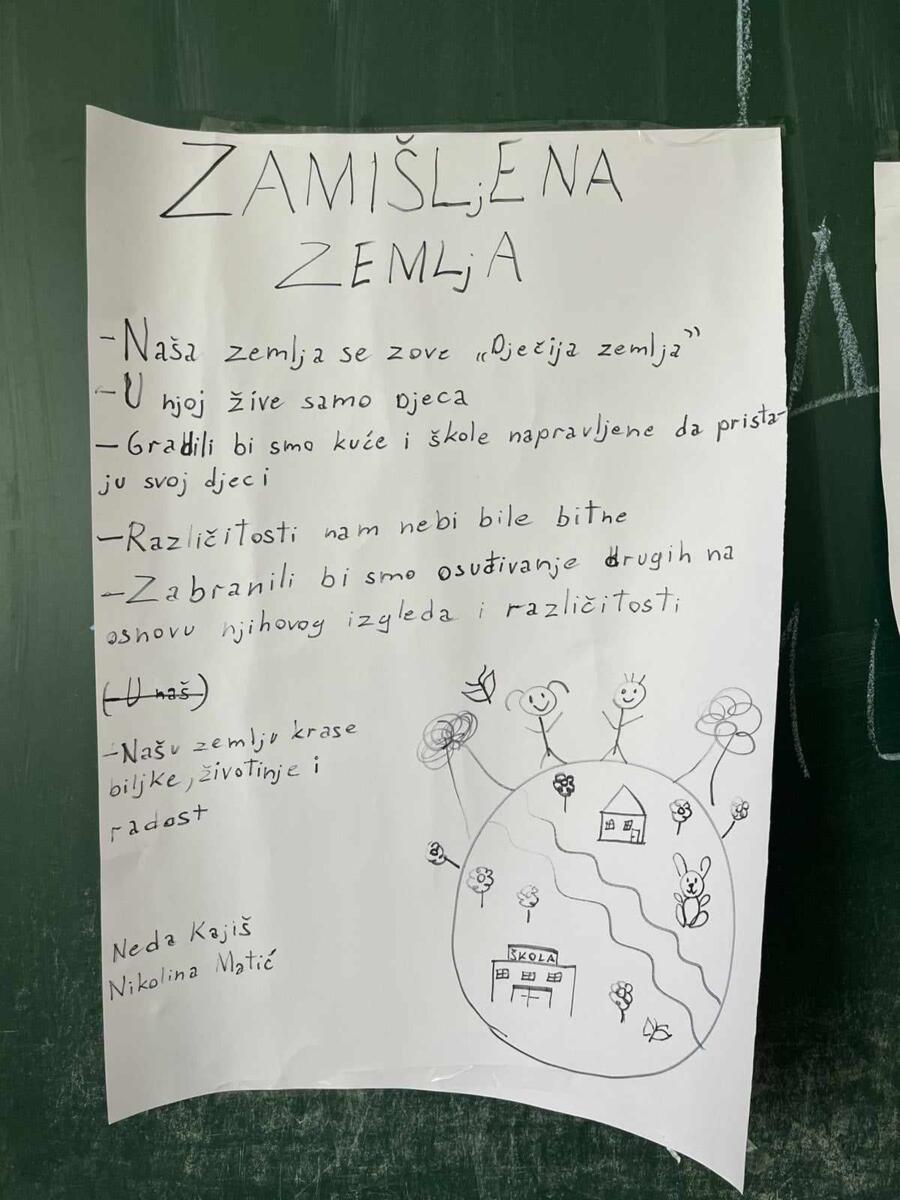 ZAMIŠLjENA
ZEMLjA
-Naša zemlja se zove „Dječija zemlja”
-U njoj žive samo Djeca
-Gradili bi smo kuće i škole napravljene da prista-
ju svoj djeci
-Različitosti nam nebi bile bitne
-Zabranili bi smo osuđivanje drugih na
osnovu njihovog izgleda i različitosti
(-U naš)
-Našu zemlju krase
biljke, životinje i
radost
ŠKOLA
Neda Kajiš
Nikolina Matić